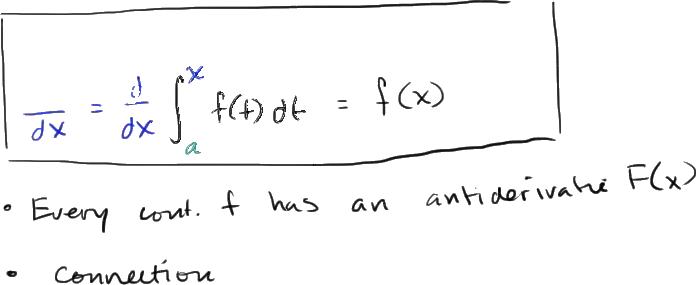 /dx = d/dx ∫ₐˣ f(t) dt = f(x)
• Every cont. f has an antiderivative F(x)
• connection